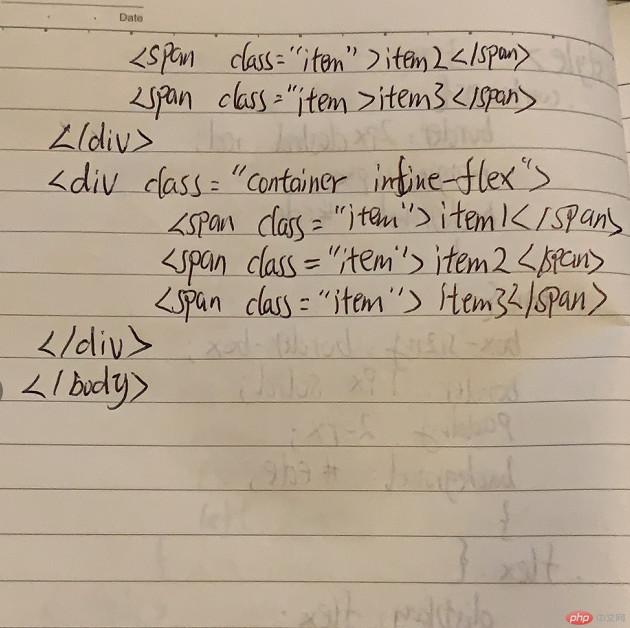 Date
<span class="item">item2</span>
<span class="item>item3</span>
</div>
<div class="container infine-flex">
<span class="item">item1</span>
<span class="item">item2</span>
<span class="item">item3</span>
</div>
</body>
php 中文网